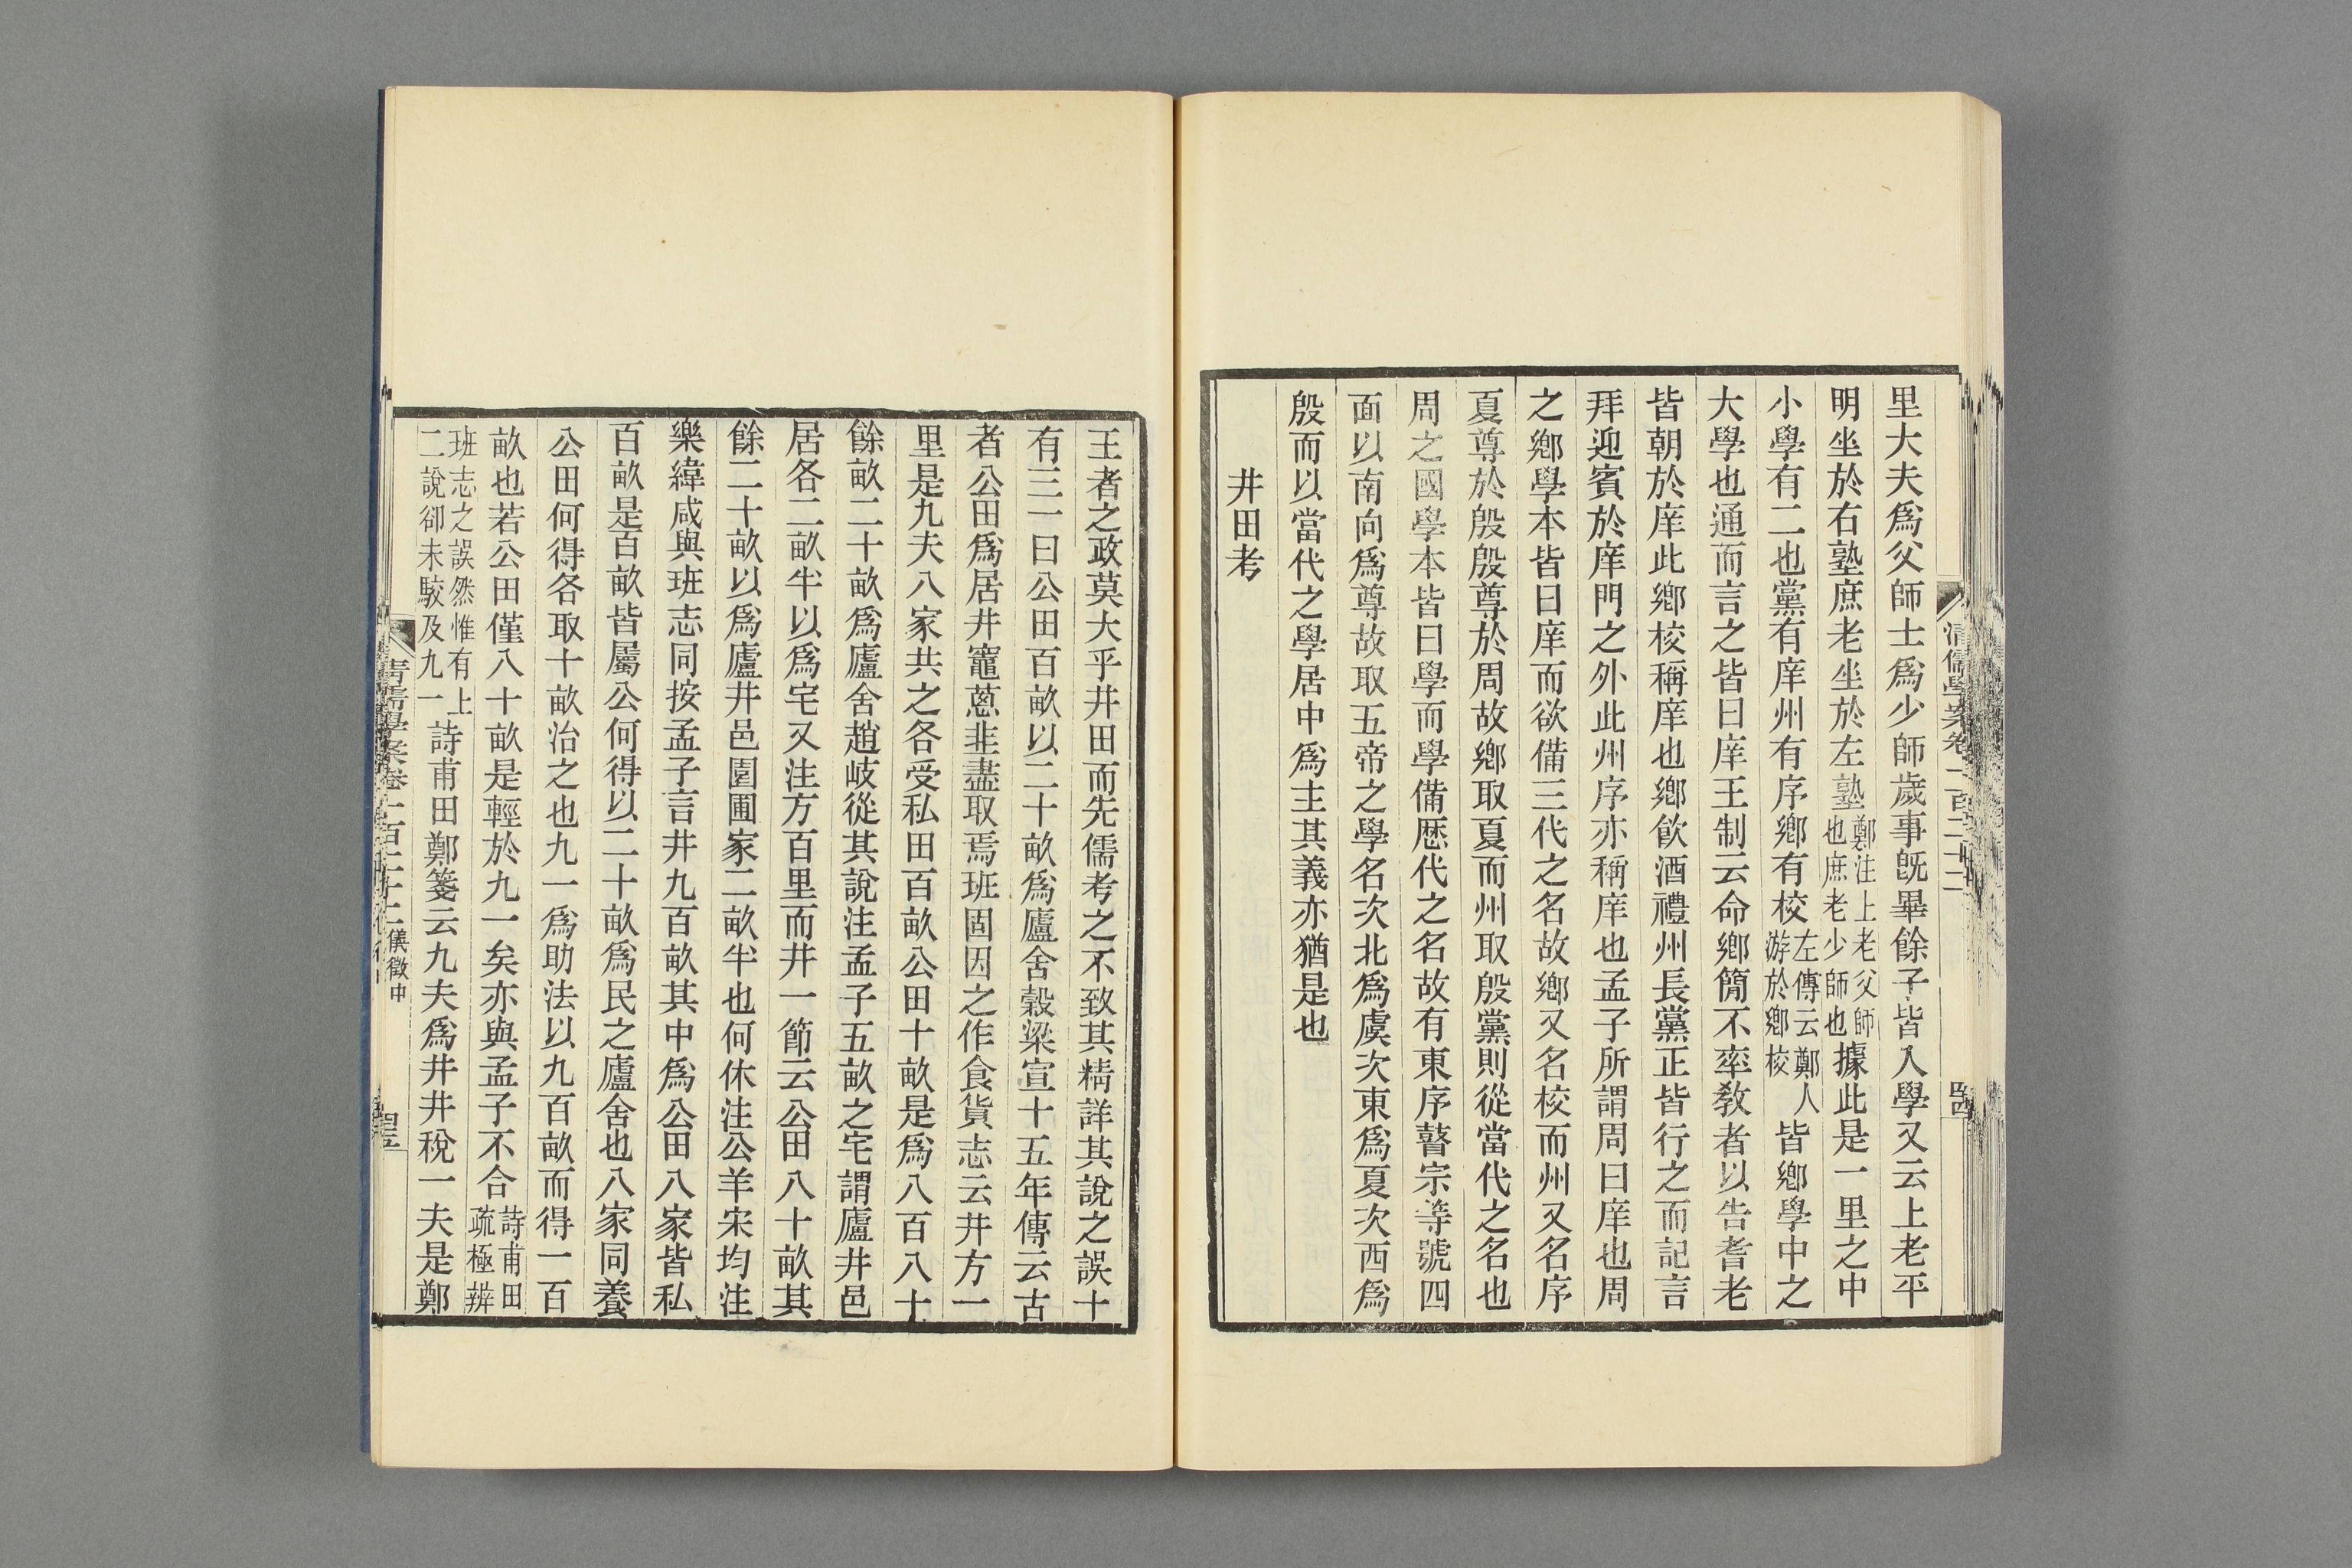 里大夫爲父師士爲少師歲事旣畢餘子皆入學又云上老平
明坐於右塾庶老坐於左塾鄭注上老父師也庶老少師也據此是一里之中
小學有二也黨有庠州有序鄕有校左傳云鄭人游於鄕校皆鄕學中之
大學也通而言之皆曰庠王制云命鄕簡不率敎者以告耆老
皆朝於庠此鄕校稱庠也鄕飮酒禮州長黨正皆行之而記言
拜迎賓於庠門之外此州序亦稱庠也孟子所謂周曰庠也周
之鄕學本皆曰庠而欲備三代之名故鄕又名校而州又名序
夏尊於殷殷尊於周故鄕取夏而州取殷黨則從當代之名也
周之國學本皆曰學而學備歷代之名故有東序瞽宗等號四
面以南向爲尊故取五帝之學名次北爲虞次東爲夏次西爲
殷而以當代之學居中爲主其義亦猶是也
井田考
清儒學案卷一百二十二
四四
王者之政莫大乎井田而先儒考之不致其精詳其說之誤十
有三一曰公田百畝以二十畝爲廬舍穀梁宣十五年傳云古
者公田爲居井竈蔥韭盡取焉班固因之作食貨志云井方一
里是九夫八家共之各受私田百畝公田十畝是爲八百八十
餘畝二十畝爲廬舍趙岐從其說注孟子五畝之宅謂廬井邑
居各二畝半以爲宅又注方百里而井一節云公田八十畝其
餘二十畝以爲廬井邑園圃家二畝半也何休注公羊宋均注
樂緯咸與班志同按孟子言井九百畝其中爲公田八家皆私
百畝是百畝皆屬公何得以二十畝爲民之廬舍也八家同養
公田何得各取十畝治之也九一爲助法以九百畝而得一百
畝也若公田僅八十畝是輕於九一矣亦與孟子不合詩甫田疏極辨
班志之誤然惟有上二說卻未駁及九一詩甫田鄭箋云九夫爲井井稅一夫是鄭
清儒學案卷一百二十二儀徵中
四五